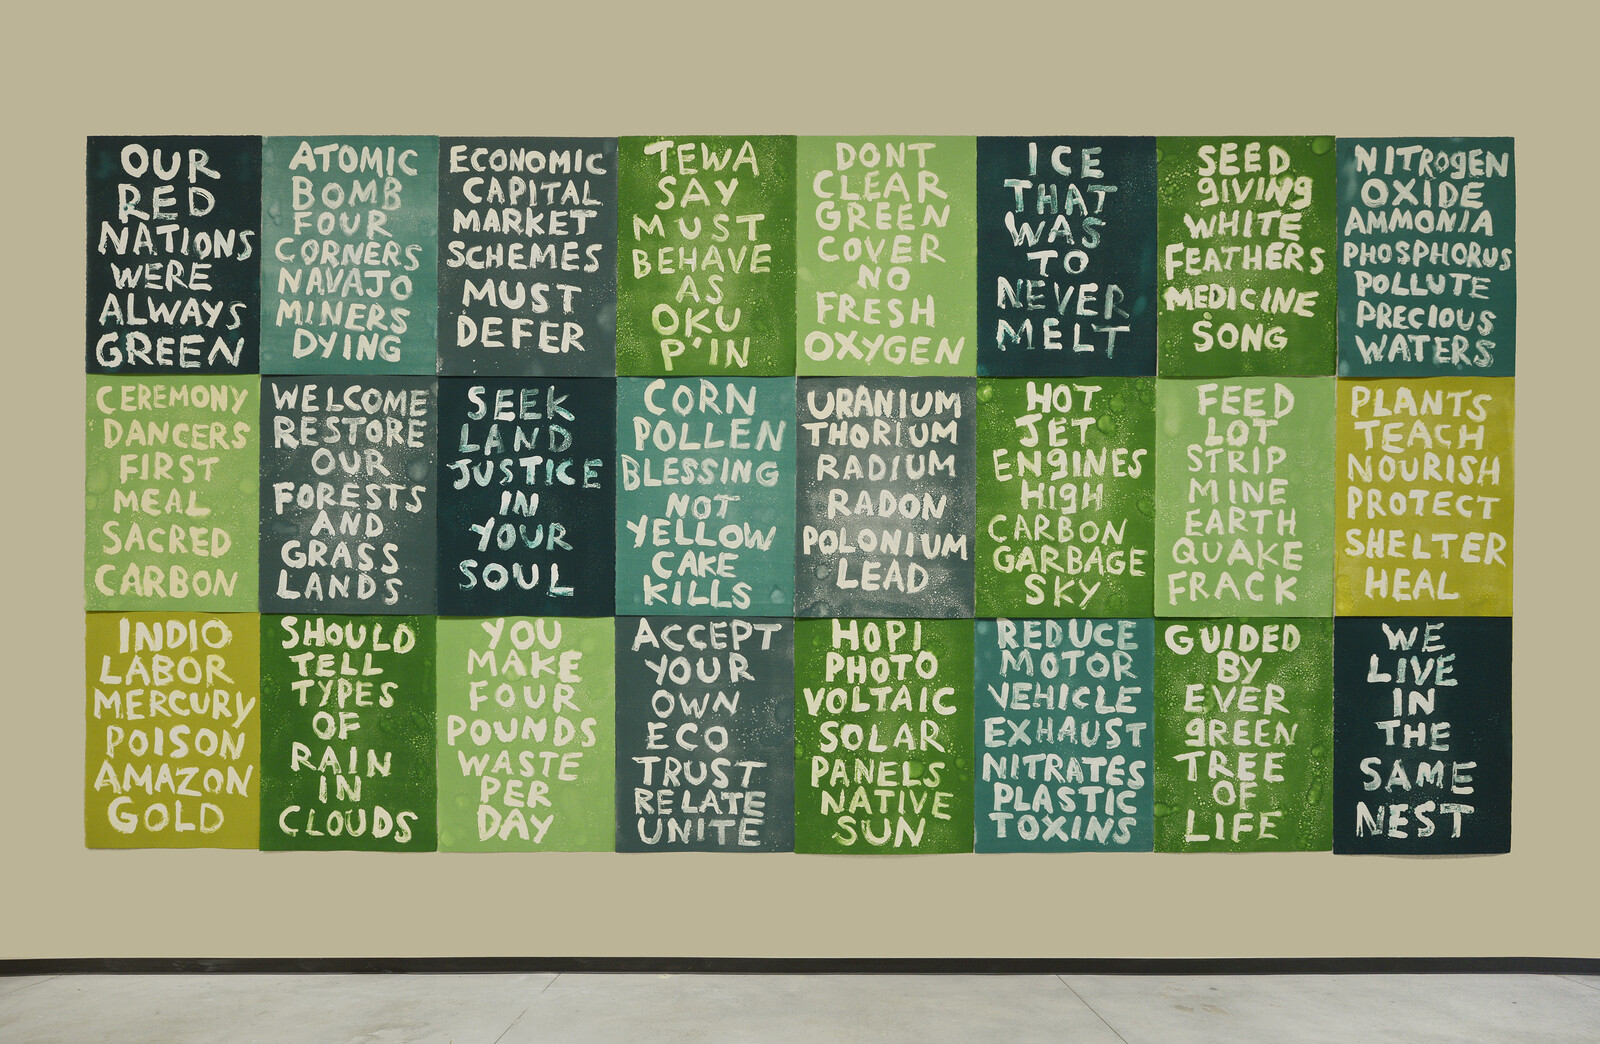 OUR
RED
NATIONS
WERE
ALWAYS
GREEN
ATOMIC
BOMB
FOUR
CORNERS
NAVAJO
MINERS
DYING
ECONOMIC
CAPITAL
MARKET
SCHEMES
MUST
DEFER
TEWA
SAY
MUST
BEHAVE
AS
OKU
P'IN
DONT
CLEAR
GREEN
COVER
NO
FRESH
OXYGEN
ICE
THAT
WAS
TO
NEVER
MELT
SEED
gIVINg
WHITE
FEATHERS
MEDICINE
SONG
NITROGEN
OXIDE
AMMONIA
PHOSPHORUS
POLLUTE
PRECIOUS
WATERS
CEREMONY
DANCERS
FIRST
MEAL
SACRED
CARBON
WELCOME
RESTORE
OUR
FORESTS
AND
GRASS
LANDS
SEEK
LAND
JUSTICE
IN
YOUR
SOUL
CORN
POLLEN
BLESSING
NOT
YELLOW
CAKE
KILLS
URANIUM
THORIUM
RADIUM
RADON
POLONIUM
LEAD
HOT
JET
ENgINES
HIgH
CARBON
GARBAGE
SKY
FEED
LOT
STRIP
MINE
EARTH
QUAKE
FRACK
PLANTS
TEACH
NOURISH
PROTECT
SHELTER
HEAL
INDIO
LABOR
MERCURY
POISON
AMAZON
GOLD
SHOULD
TELL
TYPES
OF
RAIN
IN
CLOUDS
YOU
MAKE
FOUR
POUNDS
WASTE
PER
DAY
ACCEPT
YOUR
OWN
ECO
TRUST
RELATE
UNITE
HOPI
PHOTO
VOLTAIC
SOLAR
PANELS
NATIVE
SUN
REDUCE
MOTOR
VEHICLE
EXHAUST
NITRATES
PLASTIC
TOXINS
GUIDED
BY
EVER
gREEN
TREE
OF
LIFE
WE
LIVE
IN
THE
SAME
NEST